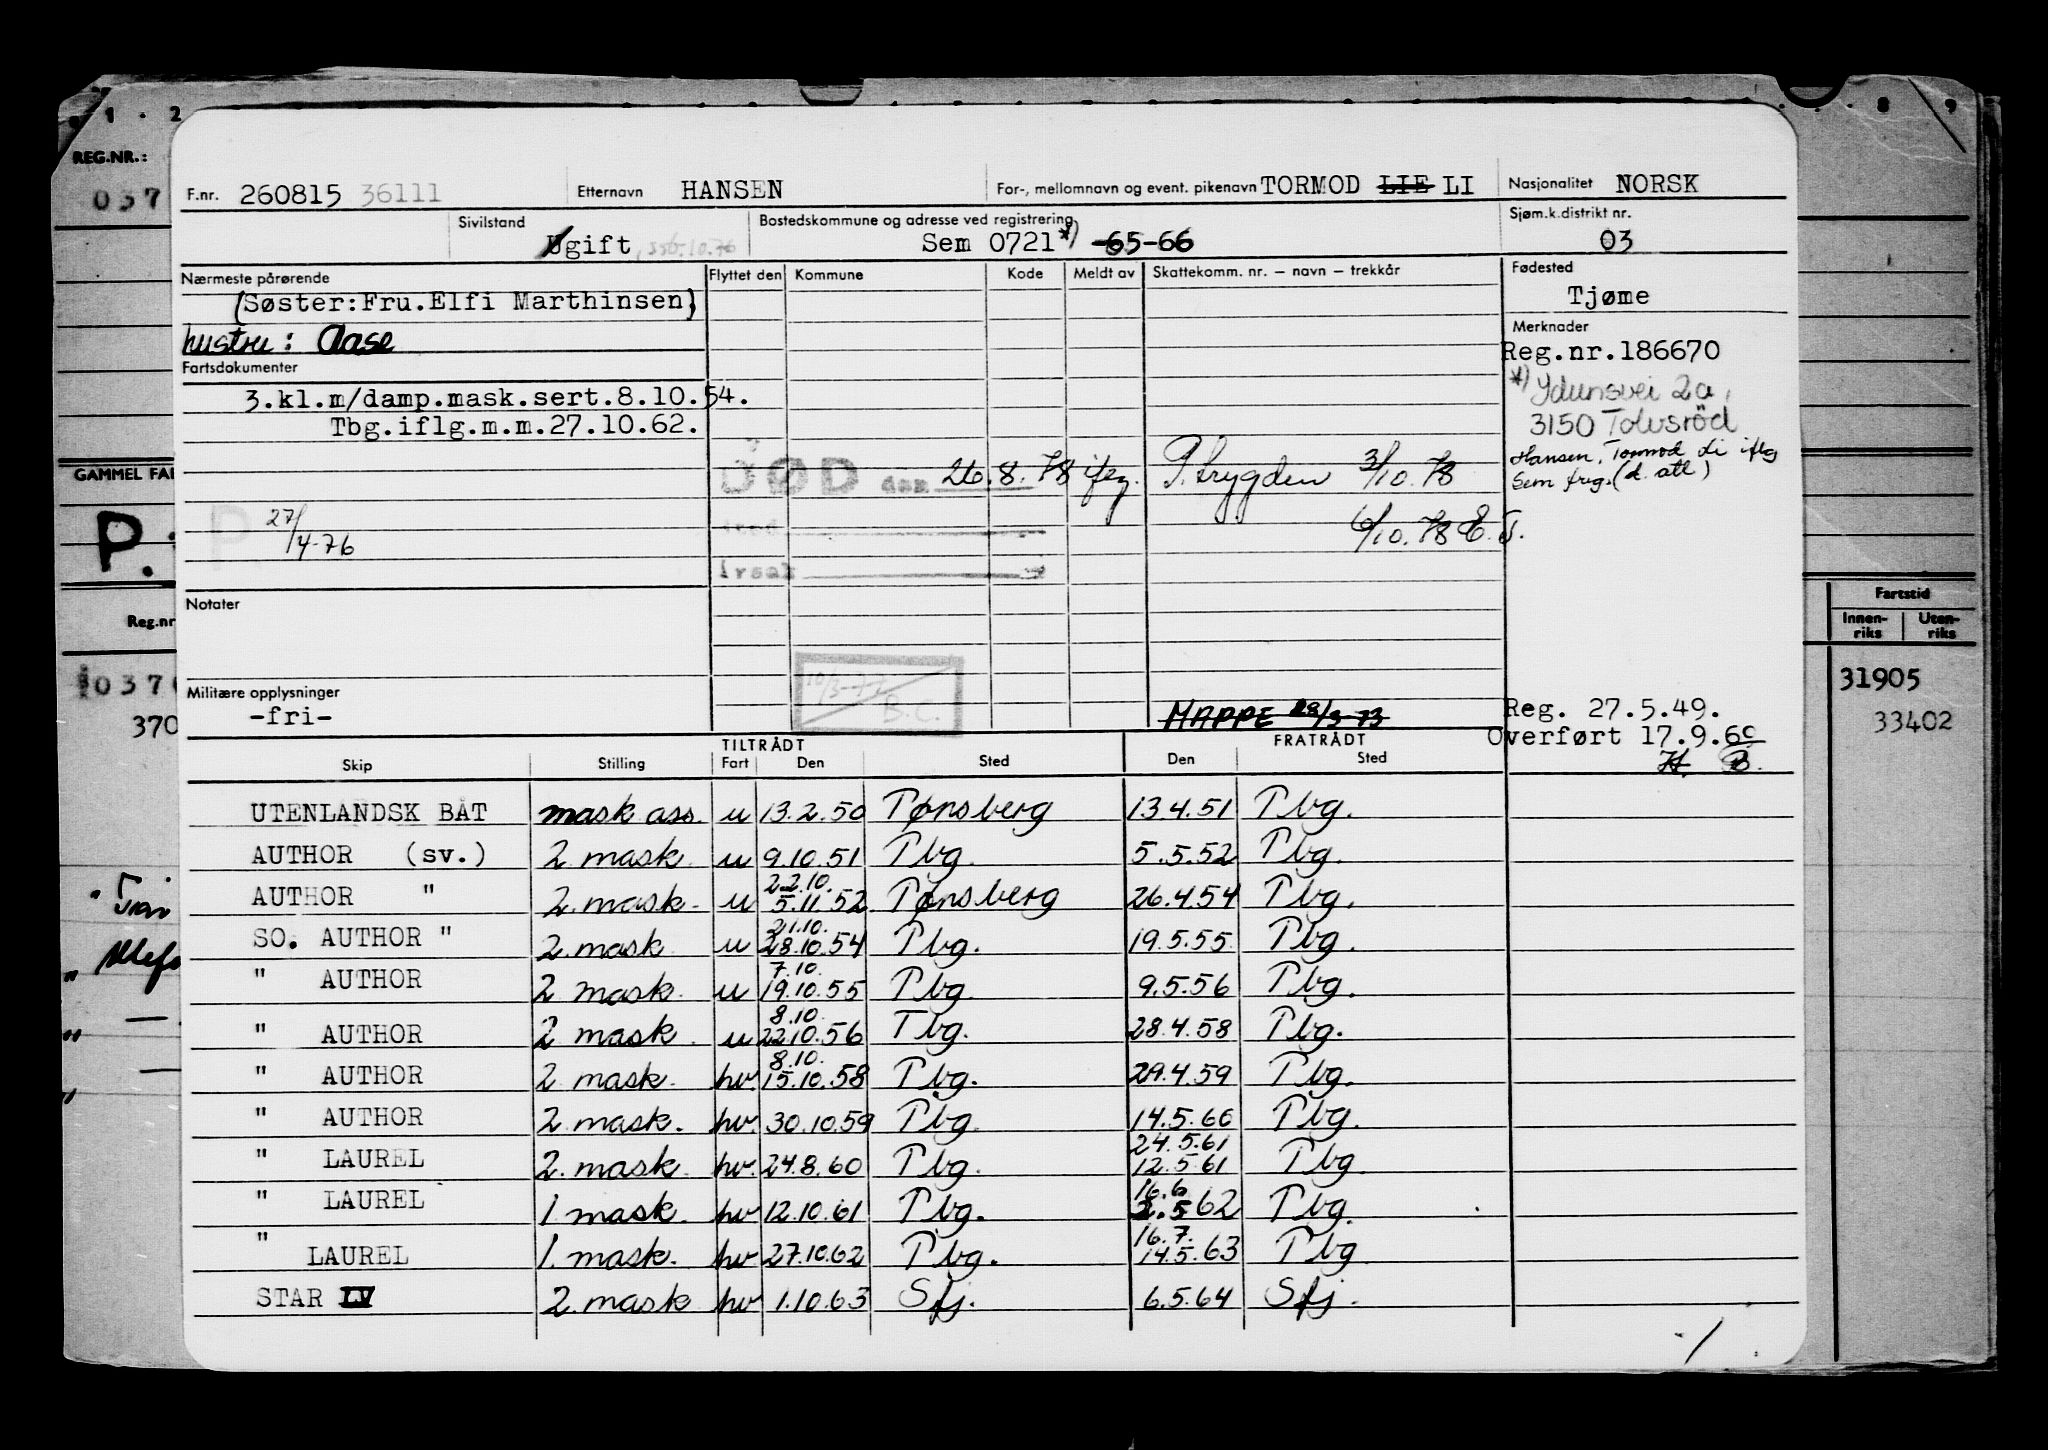 1 . 2 8 9
REG.NR.:
037
F.nr. 260815 36111 Etternavn HANSEN For-, mellomnavn og event. pikenavn TORMOD LIE LI Nasjonalitet NORSK
Sivilstand Ugift Bostedskommune og adresse ved registrering Sem 0721 *) -65-66 Sjøm.k.distrikt nr. 03
Nærmeste pårørende Flyttet den Kommune Kode Meldt av Skattekomm. nr. – navn – trekkår Fødested
(Søster:Fru.Elfi Marthinsen) Tjøme
hustru: Aase Merknader
Fartsdokumenter Reg.nr.186670
3.kl.m/damp.mask.sert.8.10.54. *) Idunsvei 2a,
Tbg.iflg.m.m.27.10.62. 3150 Tolvsröd
GAMMEL FA DØD den 26.8.78 ifлg. P. trygden 3/10.78 Hansen, Tormod Li iflg
Sem frig. (d. att)
P. 27/4-76 6/10.78 E.T.
årsak
Notater
Reg.nr Fartstid
Innen-riks Uten-riks
037 10/3-77 B.C. 31905
Militære opplysninger
370 -fri- MAPPE 28/3-73 Reg. 27.5.49. 33402
Overført 17.9.69
H. B.
TILTRÅDT FRATRÅDT
Skip Stilling Fart Den Sted Den Sted
UTENLANDSK BÅT mask ass. u 13.2.50 Tønsberg 13.4.51 Tbg.
AUTHOR (sv.) 2. mask u 9.10.51 Tbg. 5.5.52 Tbg.
AUTHOR " 2. mask. u 22.10. 5.11.52 Tønsberg 26.4.54 Tbg.
SO. AUTHOR " 2. mask u 21.10. 28.10.54 Tbg. 19.5.55 Tbg.
" AUTHOR 2 mask. u 7.10. 19.10.55 Tbg. 9.5.56 Tbg.
" AUTHOR 2 mask. u 8.10. 22.10.56 Tbg. 28.4.58 Tbg.
" AUTHOR 2 mask. hv. 8.10. 15.10.58 Tbg. 29.4.59 Tbg.
" AUTHOR 2. mask. hv. 30.10.59 Tbg. 14.5.60 Tbg.
" LAUREL 2. mask. hv. 24.8.60 Tbg. 24.5.61 12.5.61 Tbg.
" LAUREL 1 mask. hv 12.10.61 Tbg. 16.6 2.5.62 Tbg.
" LAUREL 1. mask. hv 27.10.62 Tbg. 16.7. 14.5.63 Tbg
STAR LV 2. mask hv 1.10.63 Sfj. 6.5.64 Sfj.